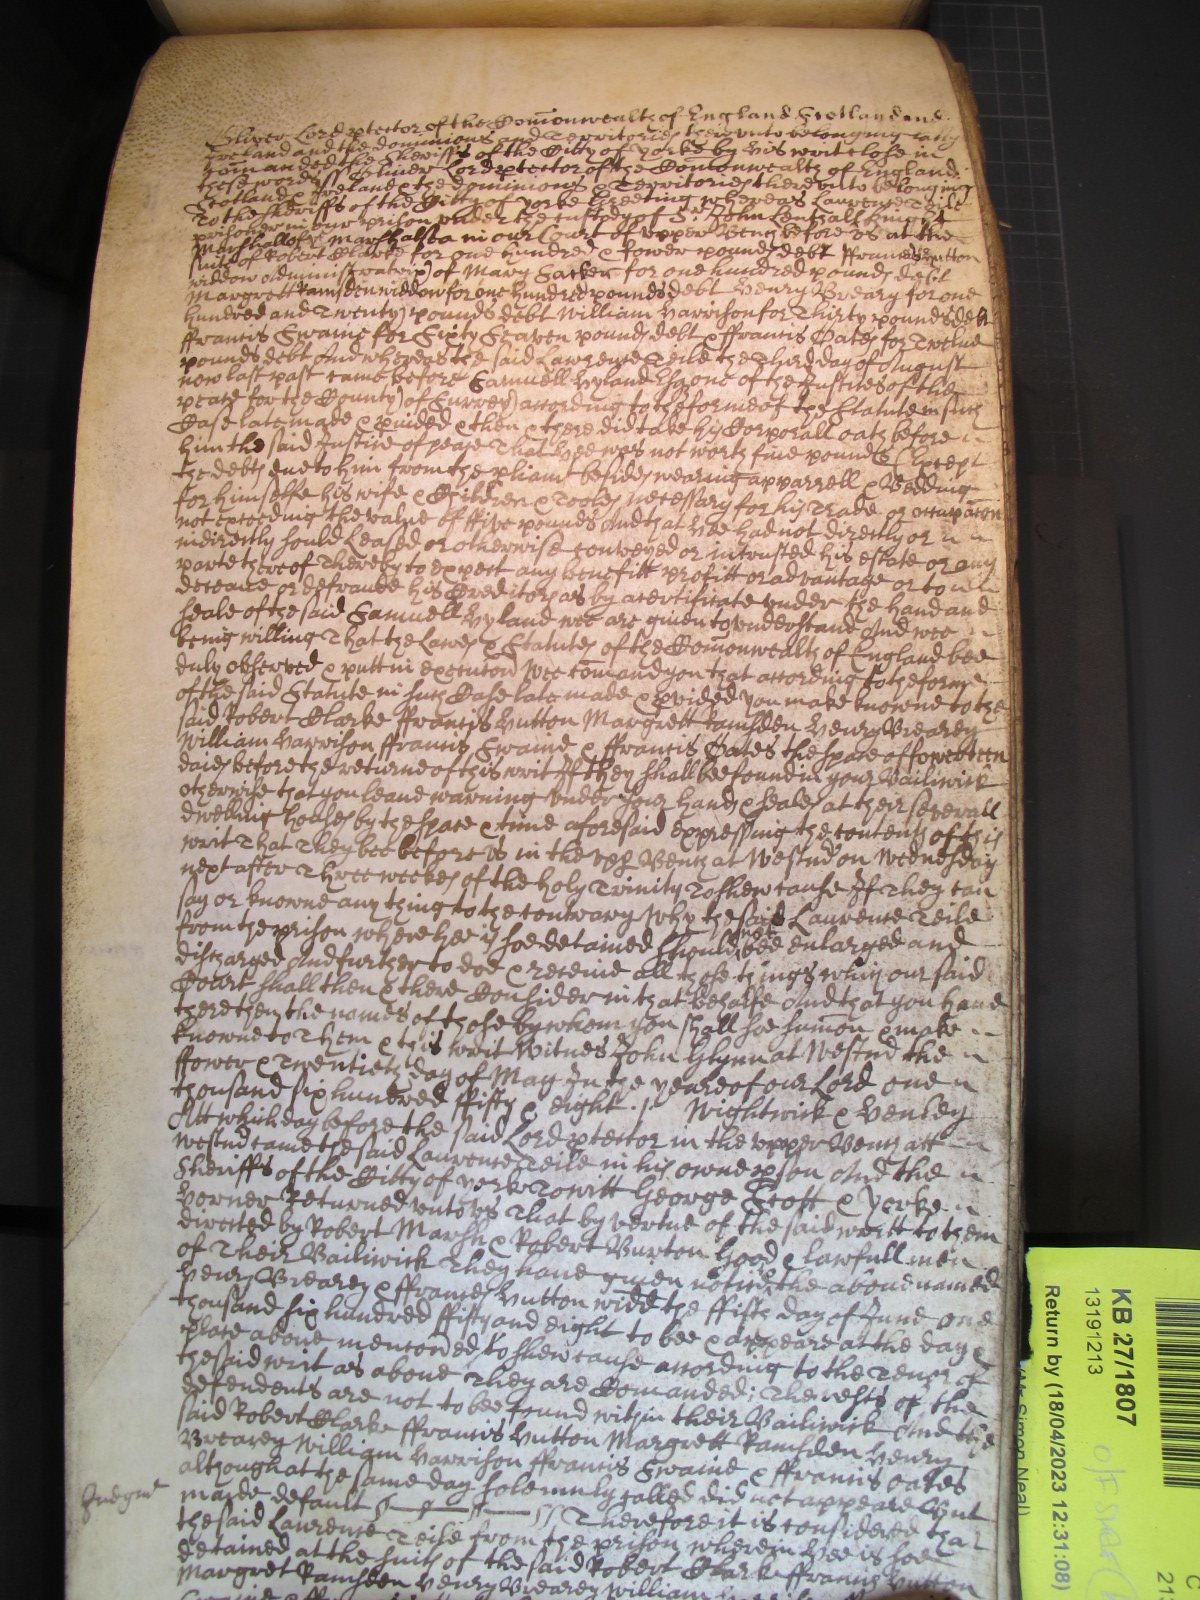 Oliver Lord ptector of the Comonwealth of England Scotland and
Ireland and the dominions and Territories thereunto belonging
comanded the Sheriffs of the Citty of Yorke by his writ close in
these words Oliver Lord ptector of the Comonwealth of England
Scotland & Ireland & the dominions & Territories thereunto belonging
To the Sheriffs of the Citty of yorke Greeting whereas Laurence Teile
prisoner in our prison under the custody of Sr John Lenthall knight
Marshall of ye Marshalsea in our Court of upper Bench before us at the
suite of Robert Clarke for one hundred & fower pounds debt ffrancis Hutton
widdow administratrix of Mary for one hundred pounds debt
Margrett Ramsden widdow for one hundred pounds debt Henry Brearey for one
hundred and Twenty pounds debt William Harrison for Thirty pounds debt
ffrancis Swaine for Sixty Seaven pounds debt & ffrancis Oates for Twelve
pounds debt And whereas the said Laurence Teile the Third day of August
now last past came before Samuell Hyland Esq one of the Justices of the
peace for the County of Surrey according to the forme of the Statute in such
Case late made & pvided & then & there did take his Corporall oath before
him the said Justice of peace That hee was not worth five pounds Except
the debts due to him from the besides wearing apparrell & Bedding
for himselfe his wife & Children & Tooles necessary for his Trade or occupacon
not exceeding the value of ffive pounds And that hee had not directly or
indirectly sould Leased or otherwise conveyed or intrusted his estate or any
parte thereof Thereby to expect any benefitt profitt or advantage or to
deceave or defraude his Creditors as by a certificate under the hand and
seale of the said Samuell Hyland wee are given to understand And wee
being willing That the Lawes & Statutes of the Comonwealth of England bee
duly observed & putt in execucon Wee comand you that according to the forme
of the said Statute in such Case late made & pvided you make knowne to the
said Robert Clarke ffrancis Hutton Margrett Ramsden Henry Brearey
William Harrison ffrancis Swaine & ffrancis Oates the space of fowerteen
daies before the returne of this writ If they shall bee found in your Bailiwick
otherwise that you leave warning under your hands & seales at their severall
dwelling houses by the space & time aforesaid expressing the contents of this
writ That they bee before us in the upp Bench at Westmr on Wednesday
next after Three weekes of the Holy Trinity To shew cause If They can
say or knowne any thing to the contrary Why the said Laurence Teile
from the prison where hee is soe detained should not bee enlarged and
discharged And further to doe & receive all those things which our said
Court shall then & there Consider in that behalfe And that you have
there then the names of those by whom you shall soe sumon & make
knowne to Them & this writ Witnes John Glynn at Westmr the
ffower & Twentieth day of May In the yeare of our Lord one
thousand six hundred ffifty & eight Wightwick & Henley
Att which day before the said Lord ptector in the upper Bench att
Westmr came the said Laurence Teile in his owne pson And the
Sheriffs of the Citty of yorke To witt George Scott & Yorke
Horner Returned unto us That by vertue of the said writt to them
directed by Robert Marsh & Robert Burton Good & lawfull men
of Their Bailiwick They have given notice to the above named
Henry Brearey & ffrancis Hutton widd the ffifth day of June one
thousand six hundred ffifty and eight to bee & appeare at the day &
place above mentioned To shew cause according to the Tenor of
the said writ as above They are Comanded; The rests of the
defendents are not to bee found within their Bailiwick And the
said Robert Clarke ffrancis Hutton Margrett Ramsden Henry
Brearey William Harrison ffrancis Swaine & ffrancis Oates
although at the same day solemnly called did not appeare But
Judgmt
made default Therefore it is considered that
the said Laurence Teile from the prison wherein hee is soe
detained at the suits of the said Robert Clarke ffrancis Hutton
Margret Ramsden Henry Brearey William
KB 27/1807
13191213
Return by (18/04/2023 12:31:08)
Simon Neal)